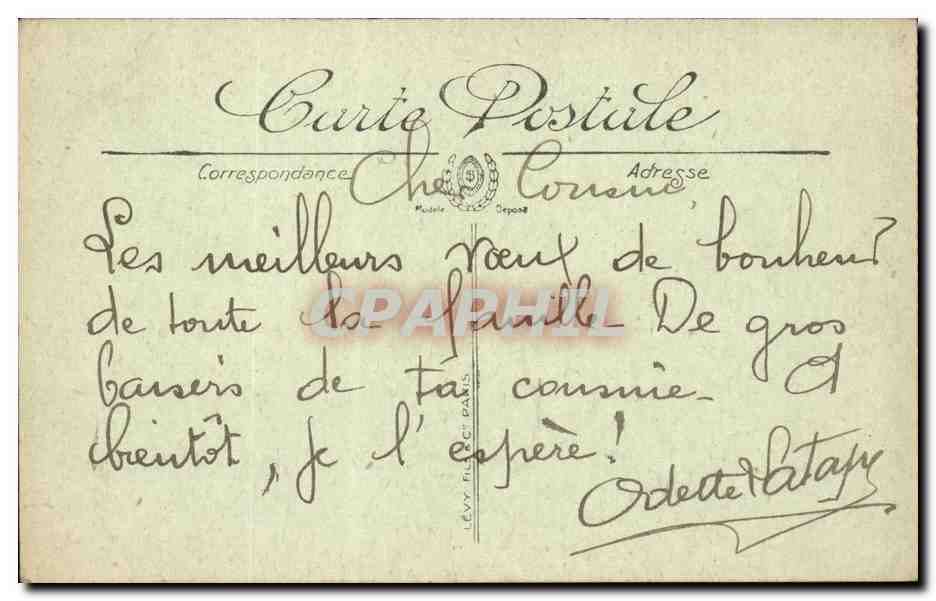 Carte Postale
Correspondance
Adresse
Modèle Déposé
Cher Cousin,
Les meilleurs vœux de bonheur
de toute la famille. De gros
baisers de ta cousine. A
bientôt, je l'espère!
Odette Latapy
LÉVY FILS & Cie PARIS
CPAPHIL